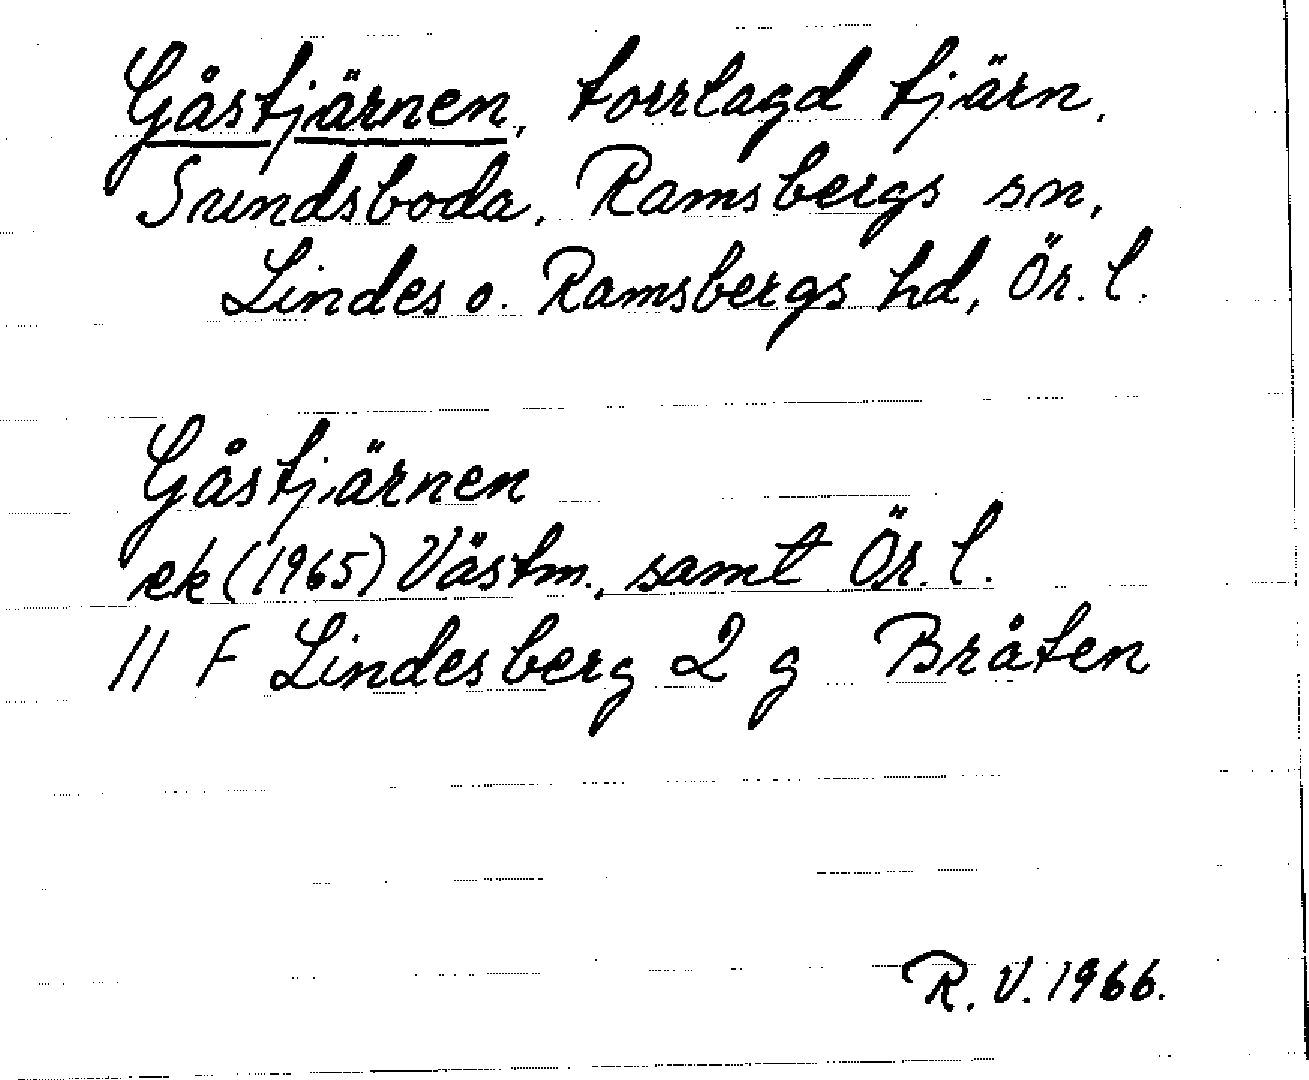 Gåstjärnen, torrlagd tjärn,
Sundsboda, Ramsbergs sn,
Lindes o. Ramsbergs hd, Ör. l.
Gåstjärnen
ek (1965) Västm., samt Ör. l.
11 F Lindesberg 2 g Bråten
R. V. 1966.